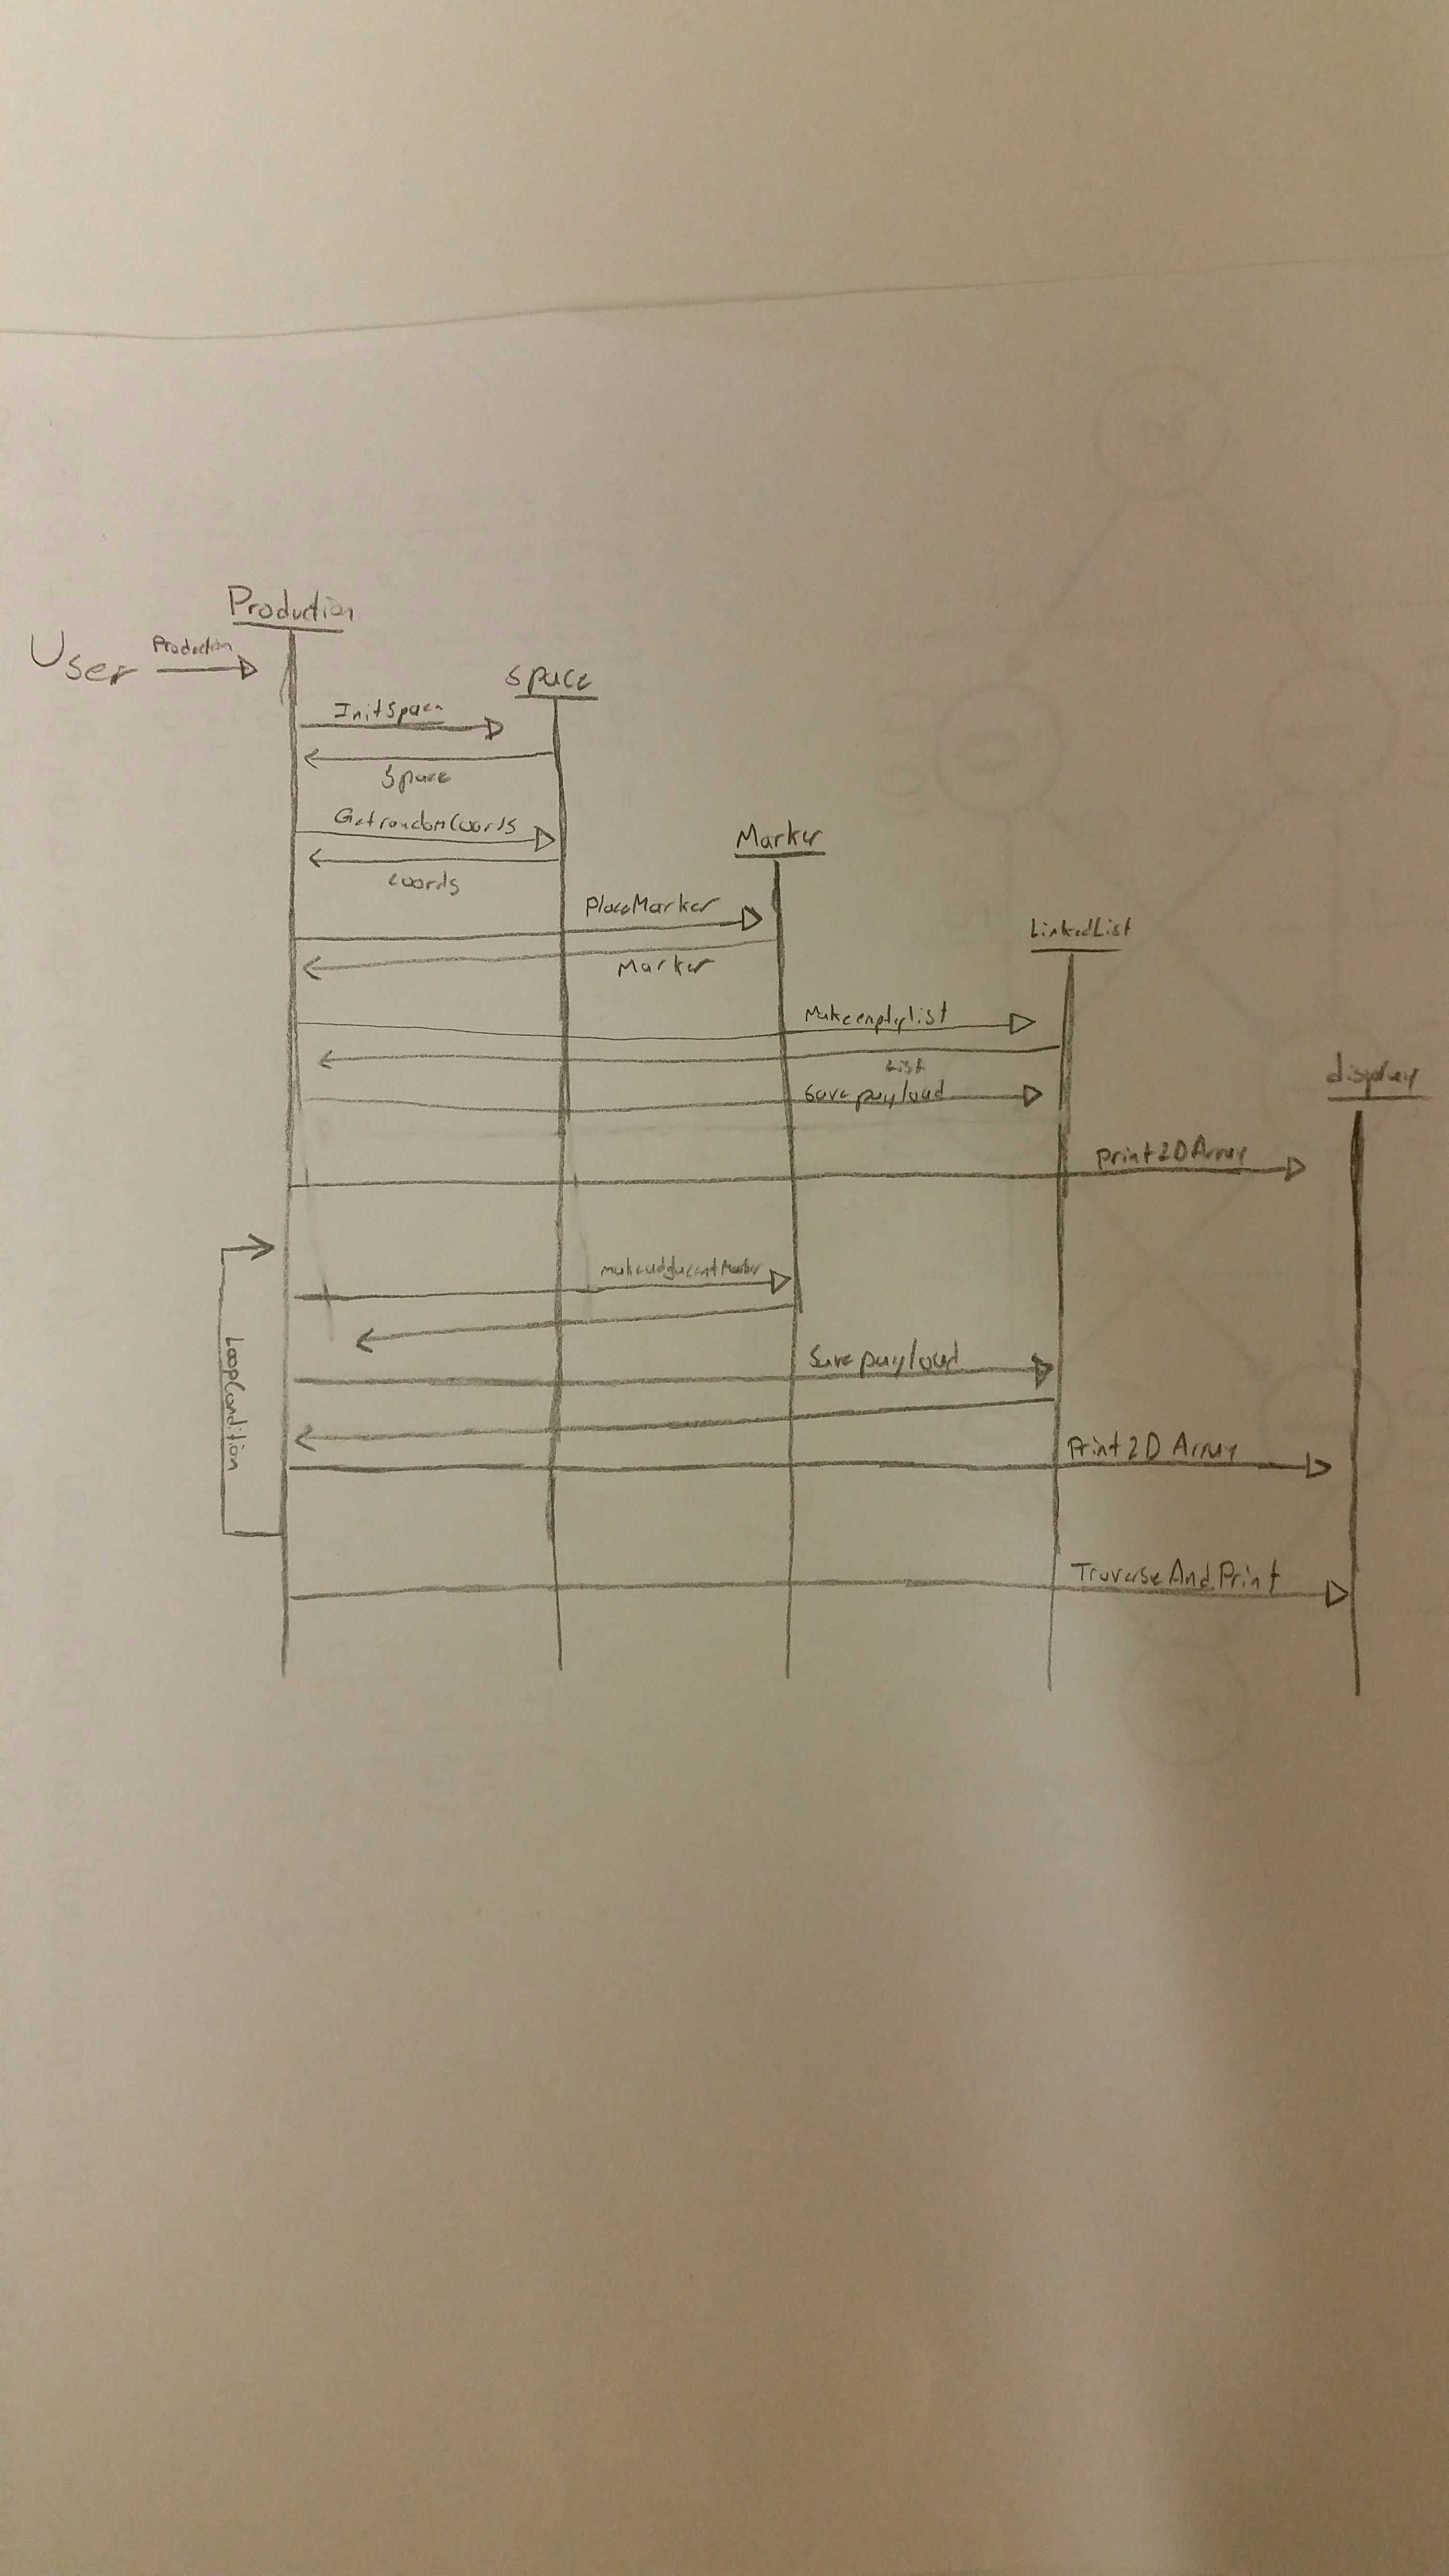 Production
User
Production
Space
InitSpace
Space
GetrandomCoords
Coords
Marker
PlaceMarker
Marker
LinkedList
Makeemptylist
List
Savepayload
display
Print2DArray
LoopCondition
Savepayload
Print2DArray
TraverseAndPrint